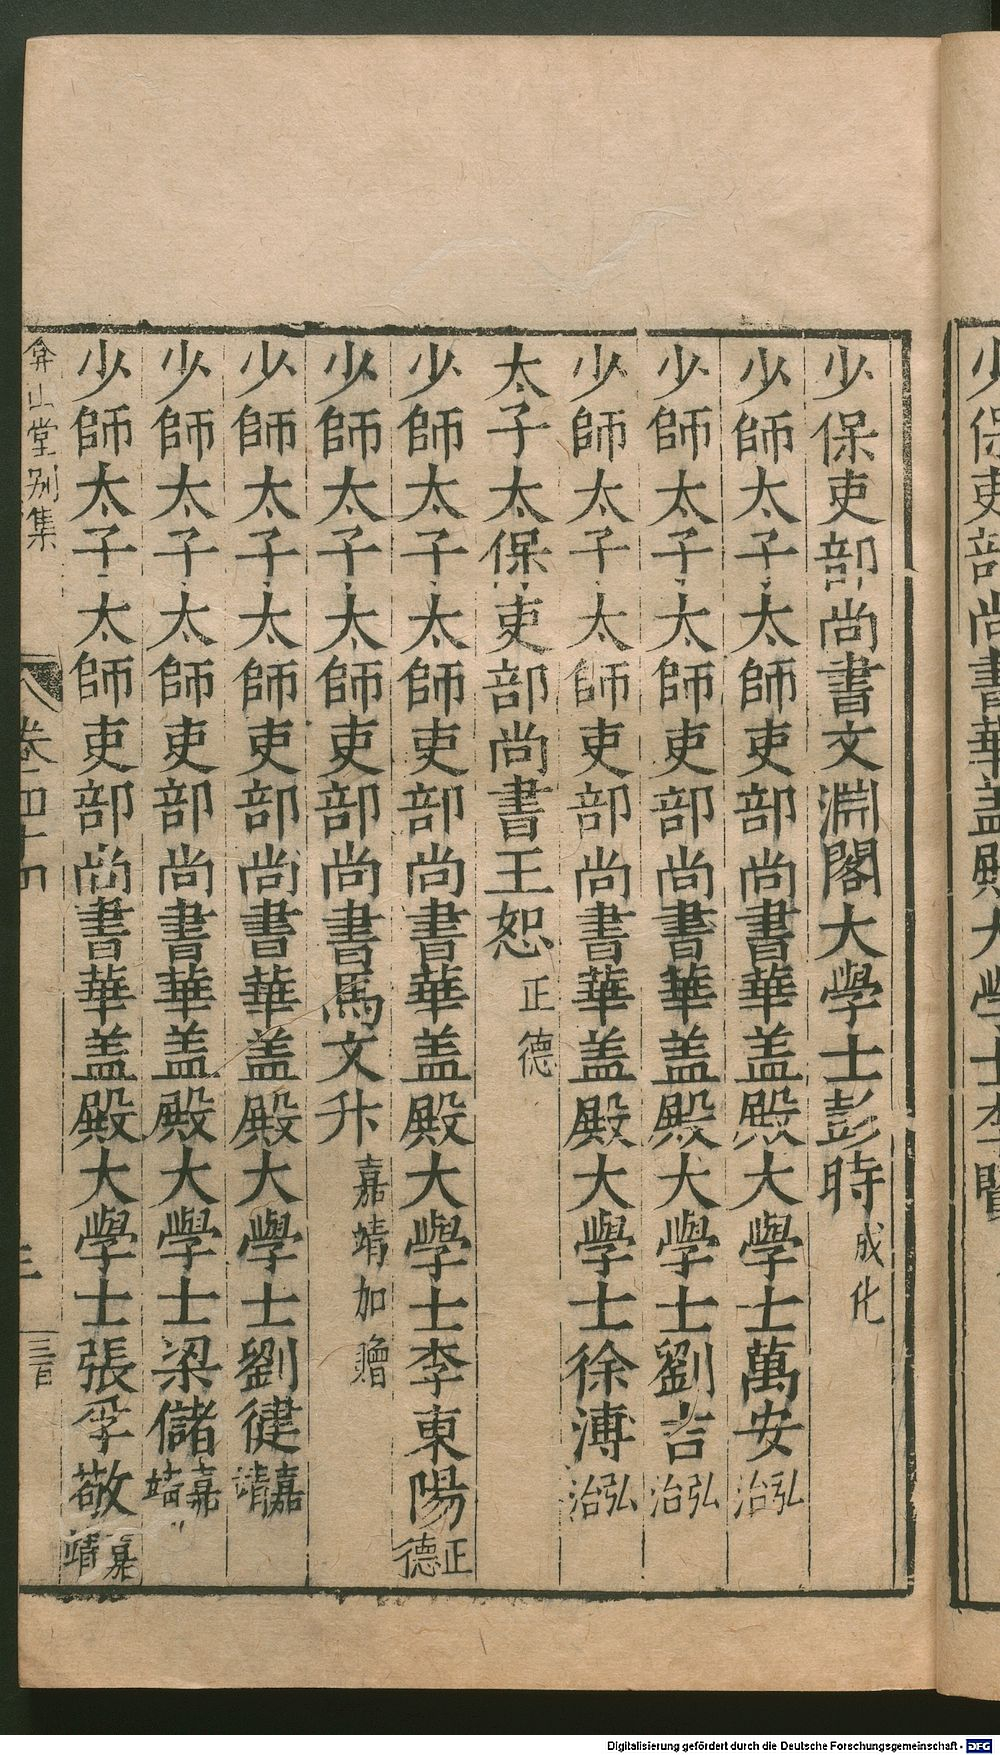 少保吏部尚書文淵閣大學士彭時成化
少師太子太師吏部尚書華盖殿大學士萬安弘治
少師太子太師吏部尚書華盖殿大學士劉吉弘治
少師太子太師吏部尚書華盖殿大學士徐溥弘治
太子太保吏部尚書王恕正德
少師太子太師吏部尚書華盖殿大學士李東陽正德
少師太子太師吏部尚書馬文升嘉靖加贈
少師太子太師吏部尚書華盖殿大學士劉健嘉靖
少師太子太師吏部尚書華盖殿大學士梁儲嘉靖
少師太子太師吏部尚書華盖殿大學士張孚敬嘉靖
弇山堂別集
卷四十四
三百
少保吏部尚書華盖殿大學士李賢
Digitalisierung gefördert durch die Deutsche Forschungsgemeinschaft - DFG